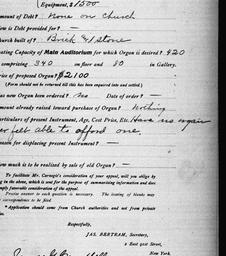 (Equipment, $1500
mount of Debt? None on Church
ow is Debt provided for? —
hurch built of? Brick & Stone
eating Capacity of Main Auditorium for which Organ is desired? 420
comprising 340 on floor and 80 in Gallery.
rice of proposed Organ? $2100
(Form should not be returned till this has been enquired into and stated.)
as new Organ been ordered? No Date of order? —
mount already raised toward purchase of Organ? Nothing
articulars of present Instrument, Age, Cost Price, Etc. Have no organ
or felt able to afford one.
eason for displacing present Instrument? —
ow much is to be realised by sale of old Organ? —
To facilitate Mr. Carnegie's consideration of your appeal, will you oblige by
ng in the above, which is sent for the purpose of summarizing information and does
mply favorable consideration of the appeal.
Precise answer to each question is necessary. The leaving of blanks may
correspondence to be returned.
* Application should come from Church authorities and not from private
Respectfully,
JAS. BERTRAM, Secretary,
2 East 91st Street,
New York.